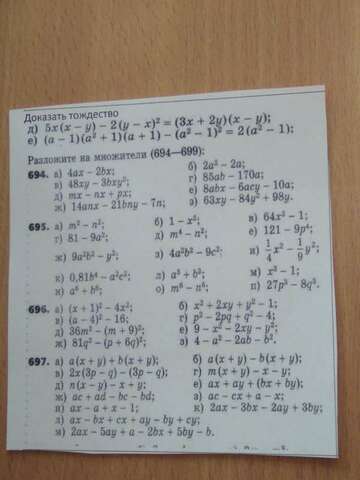 Доказать тождество
д) 5x(x − y) − 2(y − x)² = (3x + 2y)(x − y);
е) (a − 1)(a² + 1)(a + 1) − (a² − 1)² = 2(a² − 1);
Разложите на множители (694—699):
694. а) 4ax − 2bx; б) 2a² − 2a;
в) 48xy − 3bxy²; г) 85ab − 170a;
д) mx − nx + px; е) 8abx − 6acy − 10a;
ж) 14anx − 21bny − 7n; з) 63xy − 84y² + 98y.
695. а) m² − n²; б) 1 − x²; в) 64x² − 1;
г) 81 − 9a²; д) m⁴ − n²; е) 121 − 9p⁴;
ж) 9a²b² − y²; з) 4a²b² − 9c²; и) 1/4 x² − 1/9 y²;
к) 0,81b⁴ − a²c²; л) a³ + b³; м) x³ − 1;
н) a⁶ + b⁶; о) m⁶ − n⁶; п) 27p³ − 8q³.
696. а) (x + 1)² − 4x²; б) x² + 2xy + y² − 1;
в) (a − 4)² − 16; г) p² − 2pq + q² − 4;
д) 36m² − (m + 9)²; е) 9 − x² − 2xy − y²;
ж) 81q² − (p + 6q)²; з) 4 − a² − 2ab − b².
697. а) a(x + y) + b(x + y); б) a(x − y) − b(x + y);
в) 2x(3p − q) − (3p − q); г) m(x + y) − x − y;
д) n(x − y) − x + y; е) ax + ay + (bx + by);
ж) ac + ad − bc − bd; з) ac − cx + a − x;
и) ax − a + x − 1; к) 2ax − 3bx − 2ay + 3by;
л) ax − bx + cx + ay − by + cy;
м) 2ax − 5ay + a − 2bx + 5by − b.